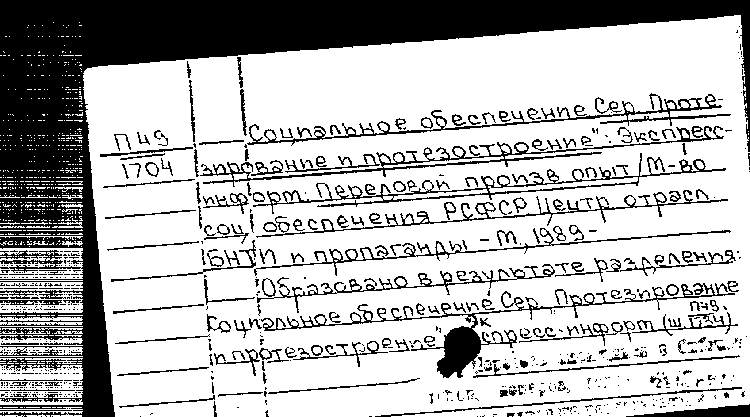 П49
1704
Социальное обеспечение Сер. "Проте-
зирование и протезостроение": Экспресс-
информ. Передовой произв опыт / М-во
соц. обеспечения РСФСР Центр отрасл
БНТИ и пропаганды - М, 1989 -
Образовано в результате разделения:
Социальное обеспечение Сер "Протезирование
и протезостроение" Экспресс-информ (ш. П49/1734)
в